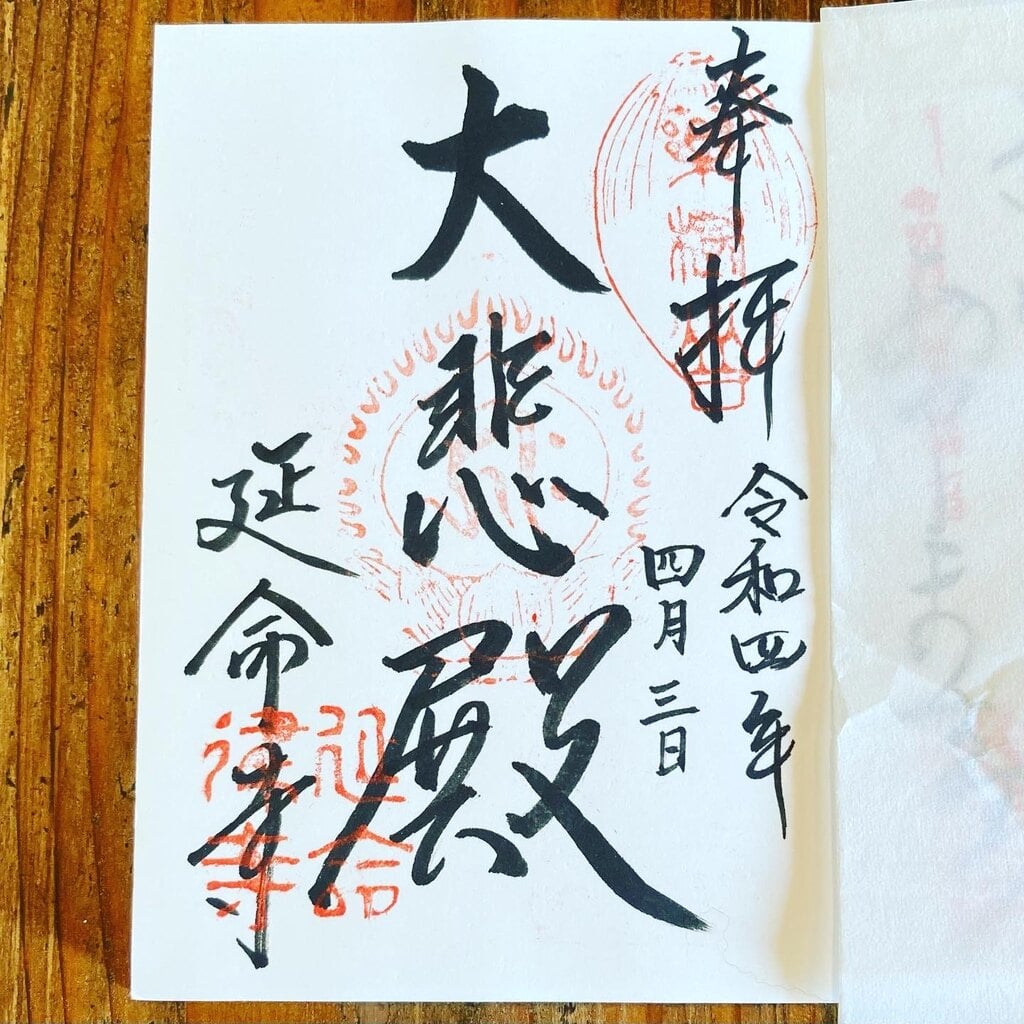 奉拝
令和四年
四月三日
大悲殿
延命寺
延命
律寺